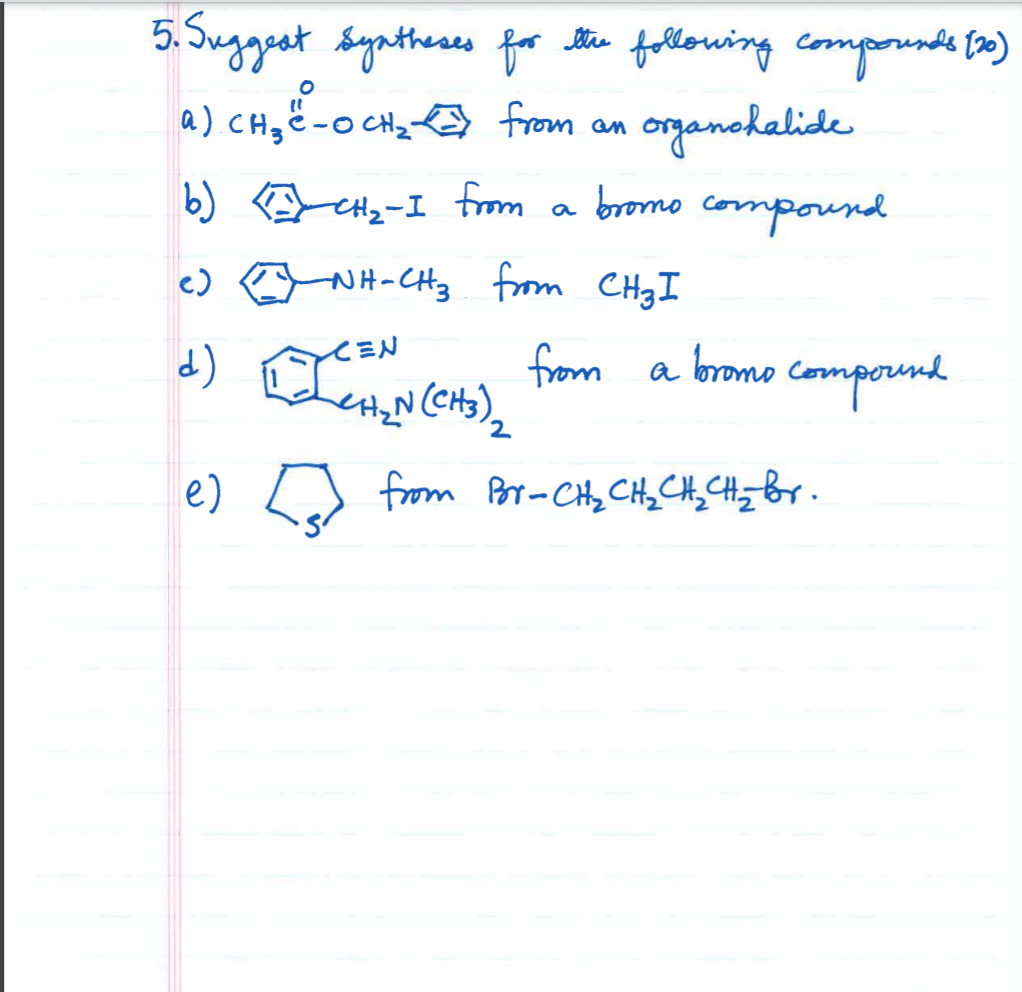 5. Suggest syntheses for the following compounds (20)
a) CH₃C(=O)-OCH₂- from an organohalide
b) -CH₂-I from a bromo compound
c) -NH-CH₃ from CH₃I
d) C≡N CH₂N(CH₃)₂ from a bromo compound
e) S from Br-CH₂CH₂CH₂CH₂-Br.